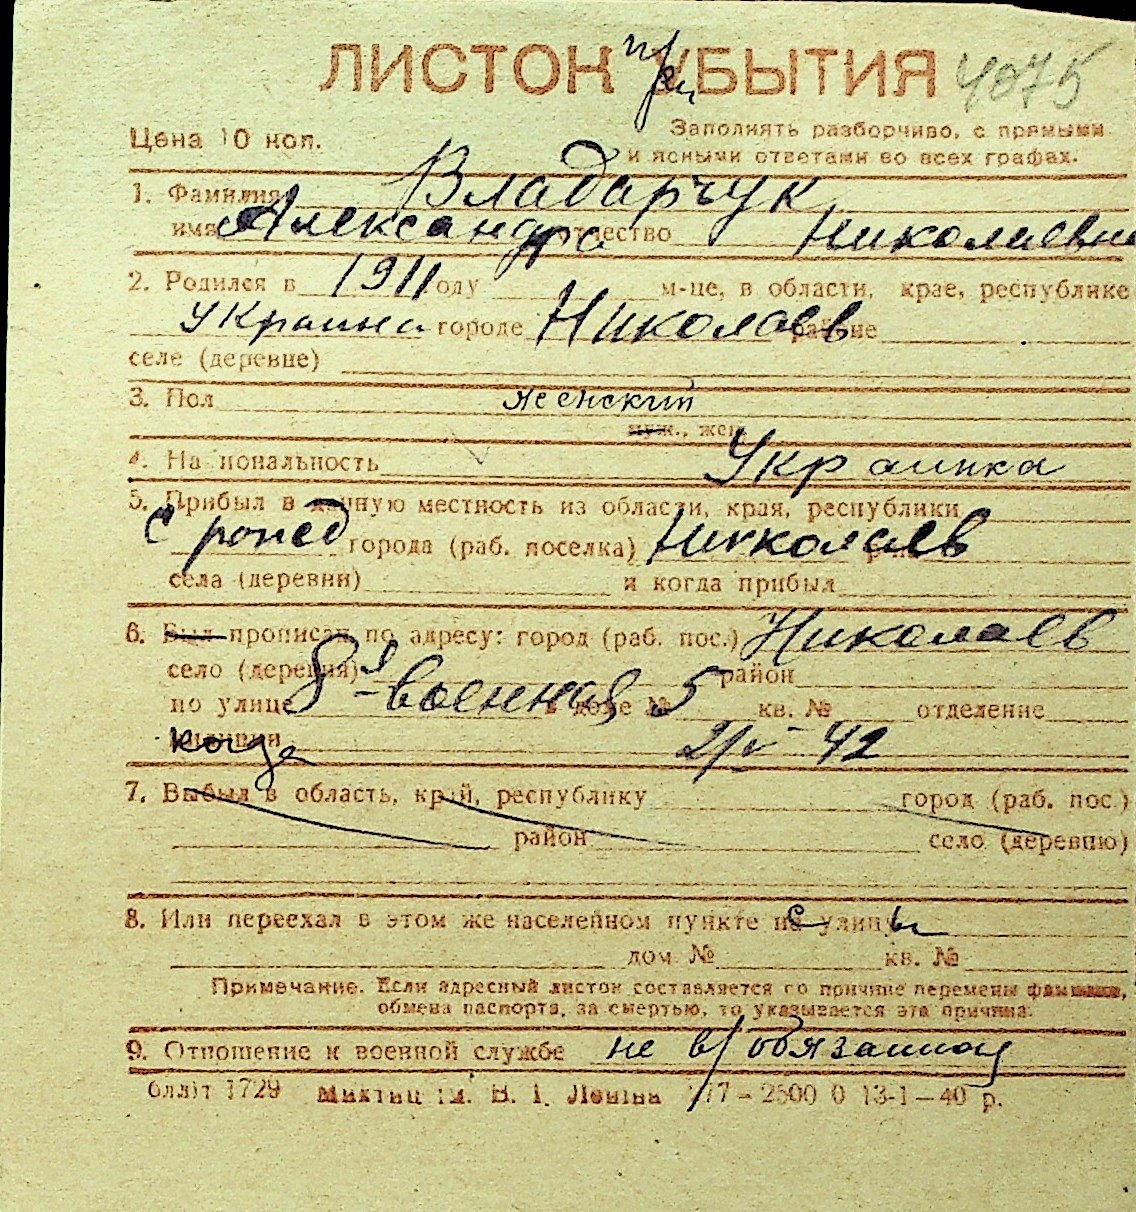 ЛИСТОК УБЫТИЯ 4075
Цена 10 коп.
Заполнять разборчиво, с прямыми
и ясными ответами во всех графах.
1. Фамилия Владарчук
имя Александра отчество Николаевна
2. Родился в 1911 году м-це, в области, крае, республике
Украина городе Николаев районе
селе (деревне)
3. Пол женский
муж., жен.
4. Национальность Украинка
5. Прибыл в данную местность из области, края, республики
с рожд города (раб. поселка) Николаев
села (деревни) и когда прибыл
6. Был прописан по адресу: город (раб. пос.) Николаев
село (деревня) район
по улице 8я-военная в доме № 5 кв. № отделение
милиции когда 2/IV-42
7. Выбыл в область, край, республику город (раб. пос.)
район село (деревню)
8. Или переехал в этом же населенном пункте с улицы
дом № кв. №
Примечание. Если адресный листок составляется по причине перемены фамилии,
обмена паспорта, за смертью, то указывается эта причина.
9. Отношение к военной службе не в/обязанная
блліт 1729 ім. В. І. Леніна 177-2500 0 13-1-40 р.